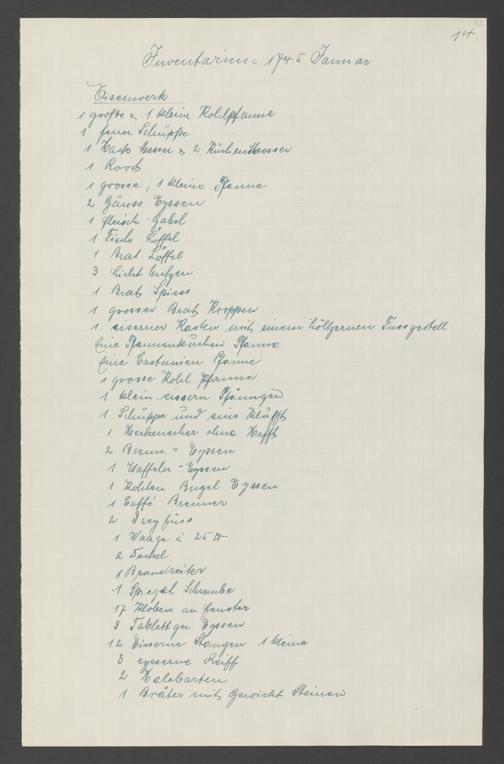 42
14.
Inventarium 1745 Januar
Eisenwerk
1 große & 1 kleine Kohlpfanne
1 feuer Schüppe
1 Hack Messer & 2 Küchen Messer
1 Roost
1 grosse, 1 kleine Pfanne
2 Gäuss Eyssen
1 fleisch-Gabel
1 Fisch Löffel
1 Brat Löffel
3 Licht butzen
1 Brat Spiess
1 grosser Brat
1 eiserner Kasten mit einem höltzernen Fussgestell
Eine Pfannenkuchen Pfanne
Eine Castanien Pfanne
1 grosse Kohl Pfanne
1 klein eissern Pfänngen
1 Schüppe und eine Klufft
1 ohne Hefft
2 Brenn = Eyssen
1 Waffeler-Eyssen
1 Kohlen Bugel Eyssen
1 Caffé Brenner
2 Dreyfuss
1 Waage á 25 ℔
2 Deckel
1 Brandreiter
1 Spiegel Schraube
17 Kloben an fenster
3 Eyssen
12 Eisserne Stangen 1 kleine
3 eyserne Reiff
2 Halebarten
1 Bräter mit Gewicht Steinen